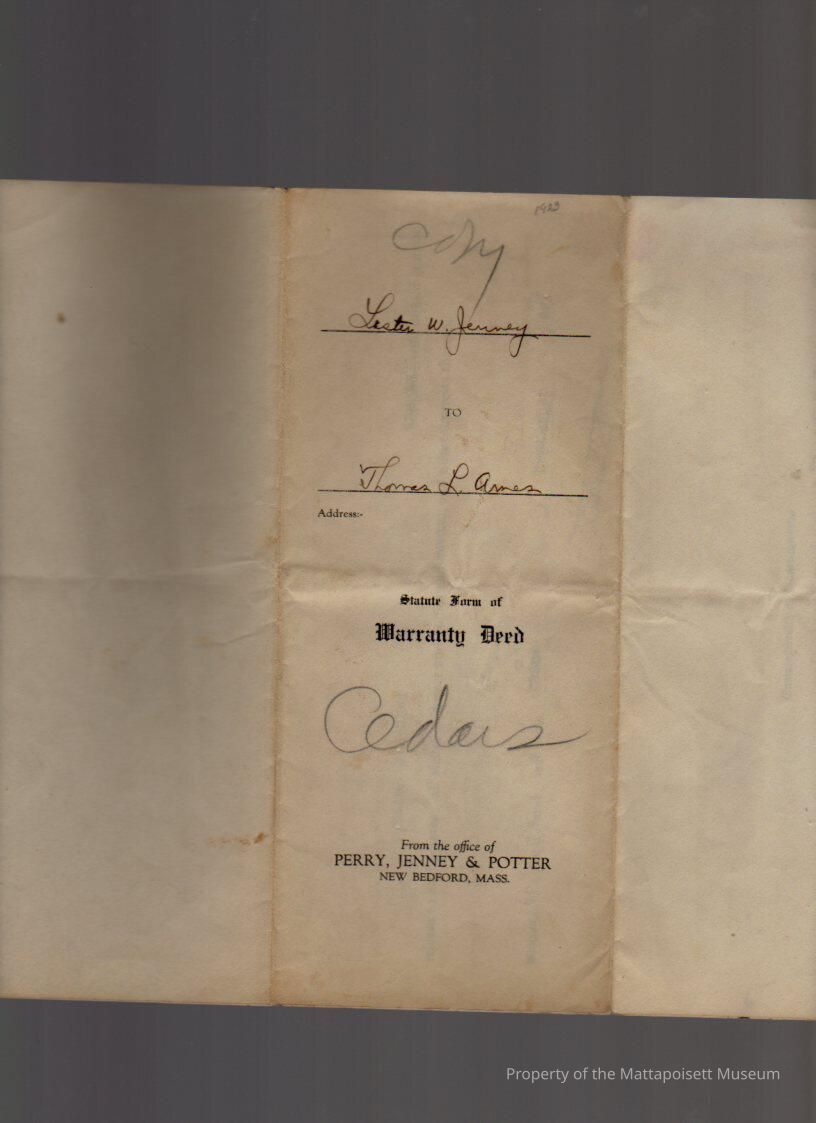 1923
Copy
Lester W. Jenney
TO
Thomas L. Ames
Address:-
Statute Form of
Warranty Deed
Cedars
From the office of
PERRY, JENNEY & POTTER
NEW BEDFORD, MASS.
Property of the Mattapoisett Museum